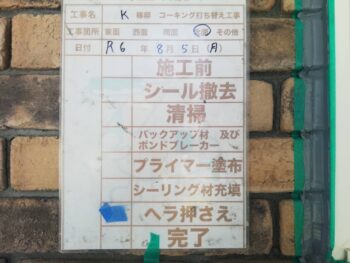 工事名 K 様邸 コーキング打ち替え工事
工事箇所 東面 西面 南面 北面 その他
日付 R6 年 8 月 5 日 (月)
施工前
シール撤去
清掃
バックアップ材 及び
ボンドブレーカー
プライマー塗布
シーリング材充填
ヘラ押さえ
完了